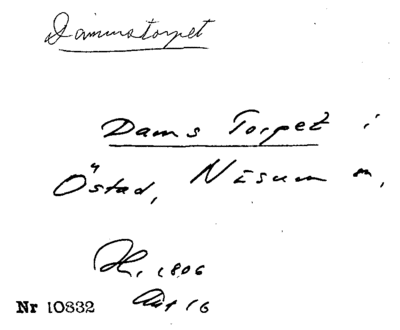 Dammstorpet
Dams Torpet i
Östad, Nisum m,
H. 1806
Nr 10832